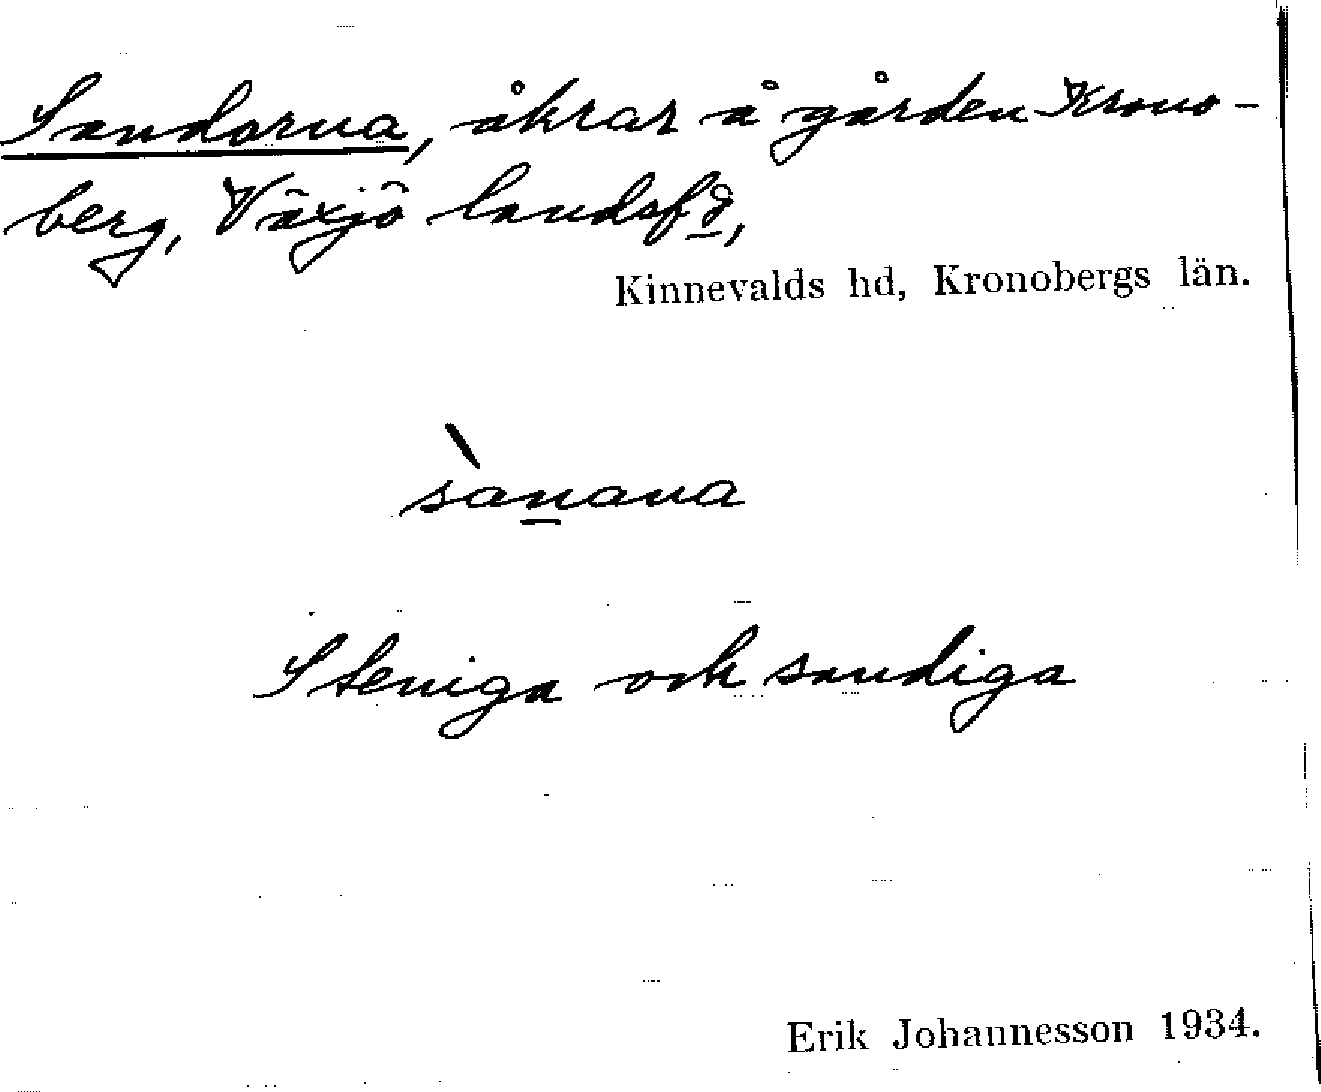 Sandorna, åkrar å gården Krono-
berg, Växjö landsfd,
Kinnevalds hd, Kronobergs län.
sànana
Steniga och sandiga
Erik Johannesson 1934.